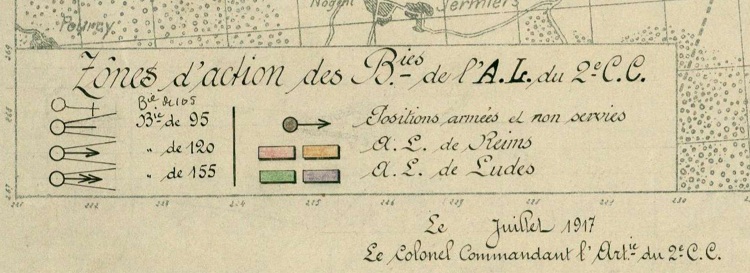 Nogent
Sermiers
Pourcy
Zônes d'action des B.ies de l'A.L. du 2e C.C.
Bie de 105
Bie de 95
" de 120
" de 155
Positions armées et non servies
A.L. de Reims
A.L. de Ludes
269
268
267
Le Juillet 1917
Le Colonel Commandant l'Art.ie du 2e C.C.